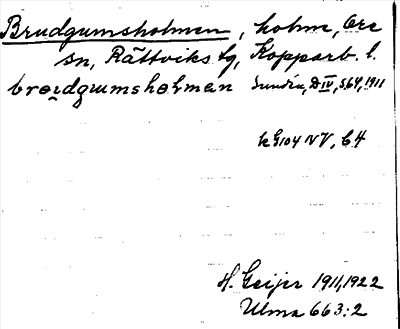 Brudgumsholmen, holme, Ore
sn, Rättviks tg, Kopparb. l.
brødgumshølmən Sundén, D IV, S64, 1911
kG104 NV, C4
H. Geijer 1911, 1922
Ulma 663:2